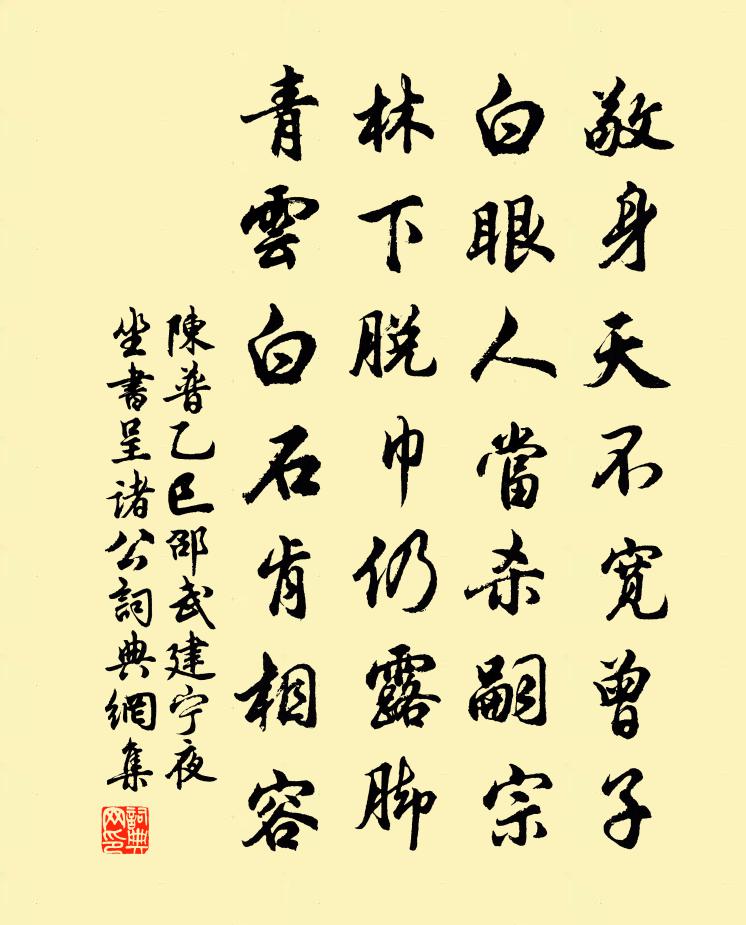 敬身天不寬曾子
白眼人當杀嗣宗
林下脱巾仍露脚
青雲白石肯相容
陳普乙巳邵武建宁夜
坐書呈诸公詞典網集
詞典
网印